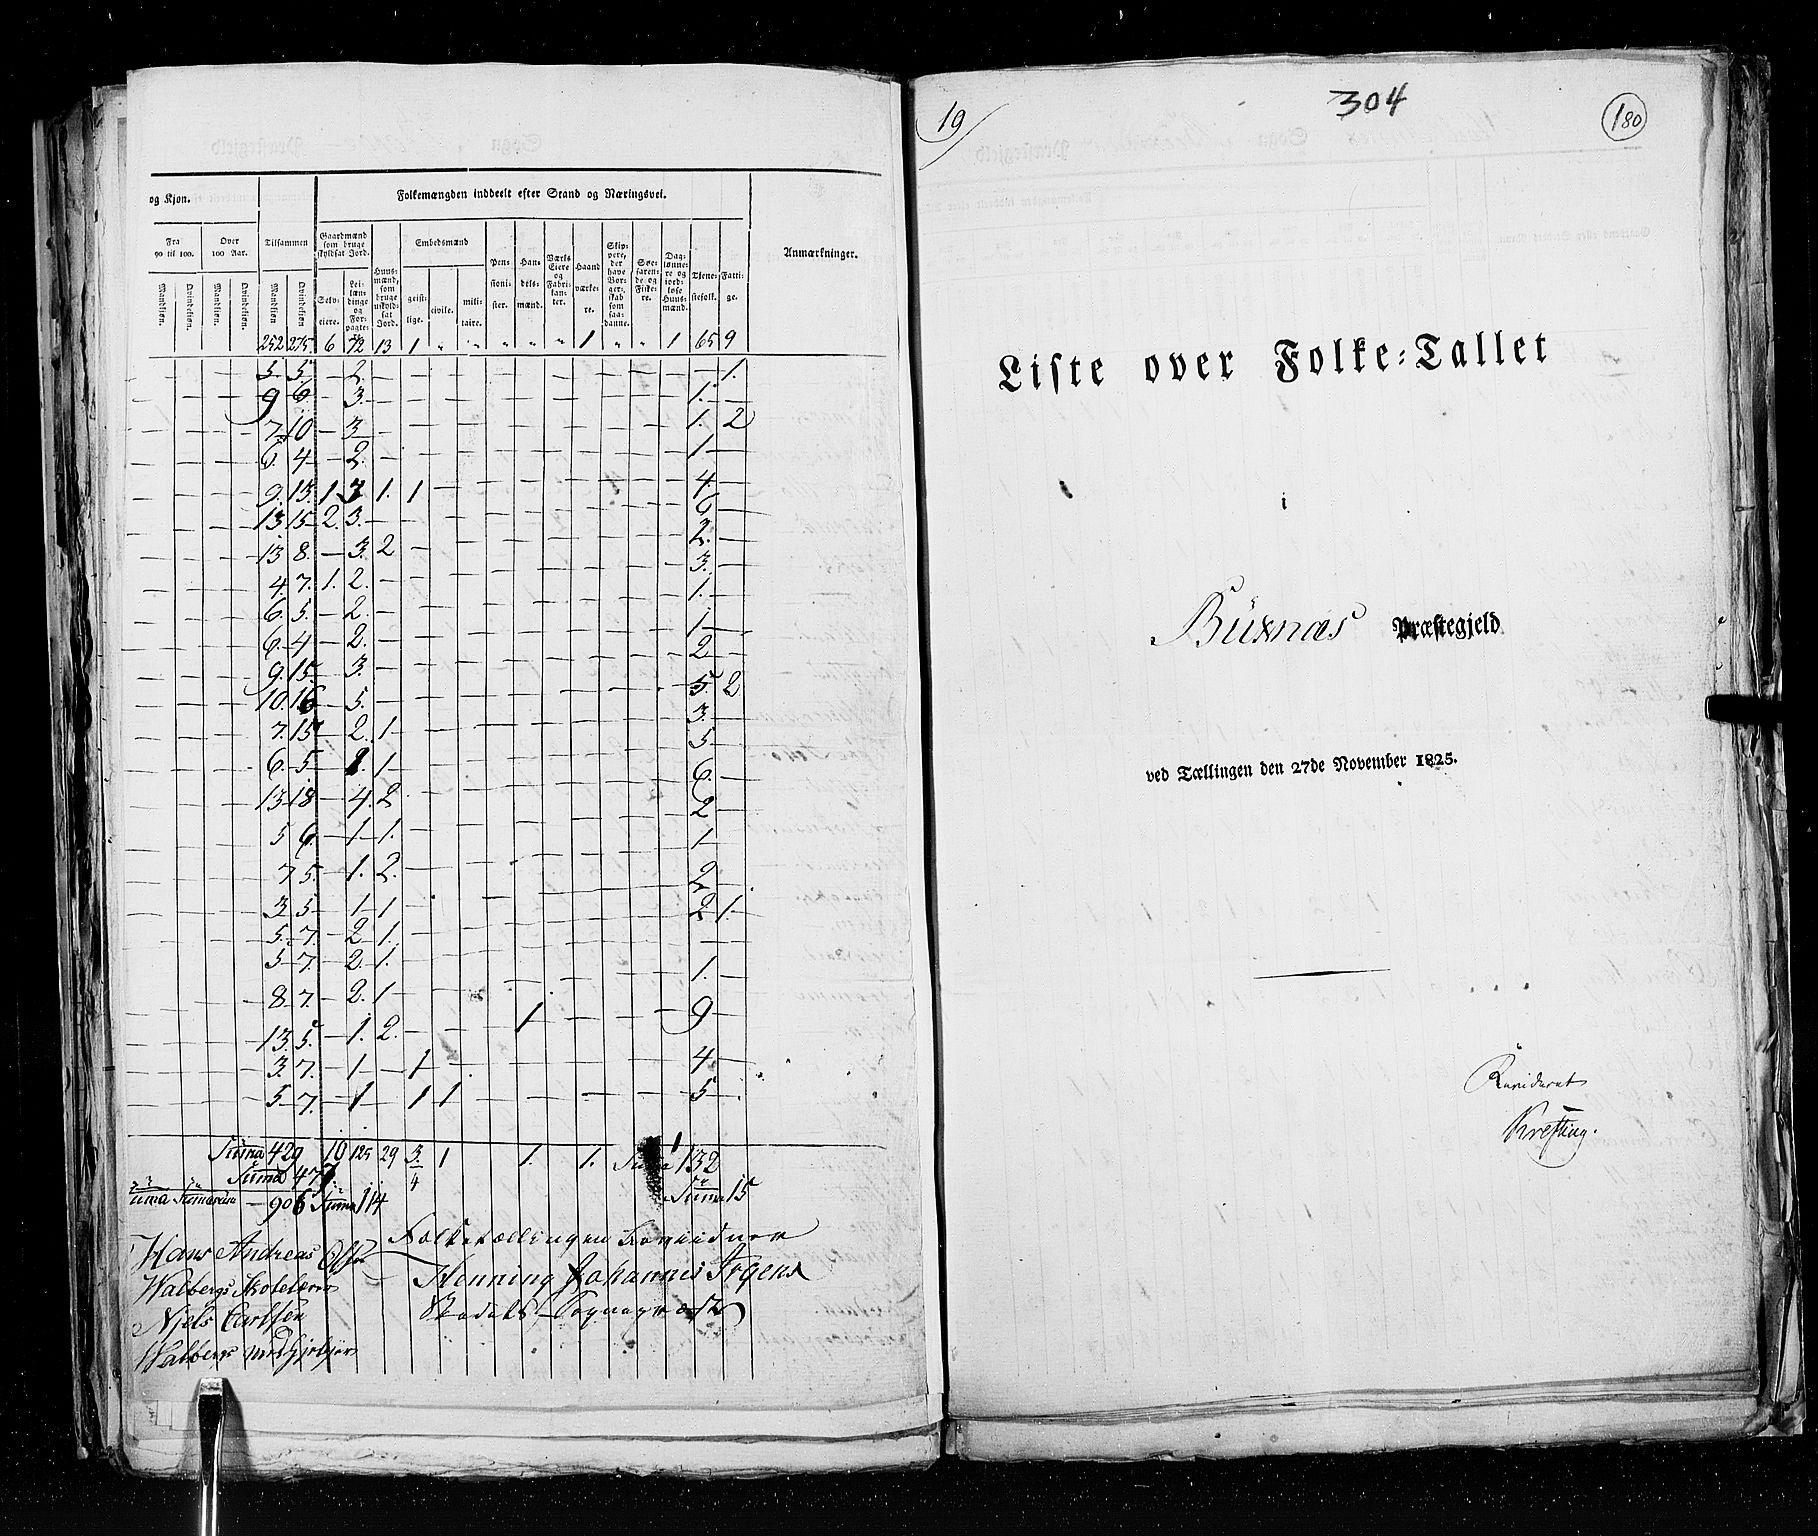 og Kjøn.
Folkemængden inddeelt efter Stand og Næringsvei.
Fra 90 til 100.
Over 100 Aar.
Tilsammen
Gaardmænd som bruge skyldsat Jord.
Huusmænd, som bruge uskyldsat Jord.
Embedsmænd
Pensionister.
Handelsmænd.
Værks Eiere og Fabrikanter.
Haandværkere.
Skippere, der have Borgerskab som saadanne.
Søefarende og Fiskere.
Daglønnere og jordløse Huusmænd.
Tjenestefolk.
Fattige.
Anmærkninger.
Mandkjøn. Qvindekjøn. Mandkjøn. Qvindekjøn. Mandkjøn Qvindekjøn
Selveiere. Leilændinge og Forpagtere.
geistlige. civile. militaire.
252 275. 6 72 13 1 „ „ „ „ „ 1 „ „ 1 65 9
5. 5. — 2. — — 1.
9 6. — 3. — — 1. —
7. 10 — 3 — — 1. 2
6. 4 — 2. — — 1 —
9. 13. 1. 3 1. 1 — 4. —
13 15 2. 3. — — 6 —
13 8. — 3. 2 — 2. —
4. 7. 1. 2. — — 3. —
6. 5. — 2. — — 1. —
6. 4 — 2. — — 1 —
9. 15. — 3. — — 2 —
10. 16 — 5. — — 5. 2
7. 15 — 2. 1 — 3. —
6. 5 — 1. 1 — 5 —
13. 18 — 4. 2 — 6 —
5 6. — 1 1. — 2 —
7 5. — 1. 2. — 1 —
3. 5 — 1 1 — 2 —
5. 7. — 2 1. — 2 1.
5 7. — 2. 1. — — —
8. 7. — 2. 1 — 1. —
13. 5. — 1. 2. — 1 — 9 —
3. 7. — 1 — 1 — 4. —
5. 7. — 1 — 1 1 — 5 —
Suma 429 10 125 29 3 1 1. 1. Suma 1 132
Suma 477 4 Suma 15
Suma Sumarum — 906 Suma 114
Hans Andreas Olsen
Walbergs Skolelærer
Niels Carlsen
Walbergs
Folketællingen bevidner
Henning Johannes Irgens
Sognepræst
19)
304
180
Liste over Folke-Tallet
i
Büxnæs Præstegjeld
ved Tællingen den 27de November 1825.
Revideret
Krefting.